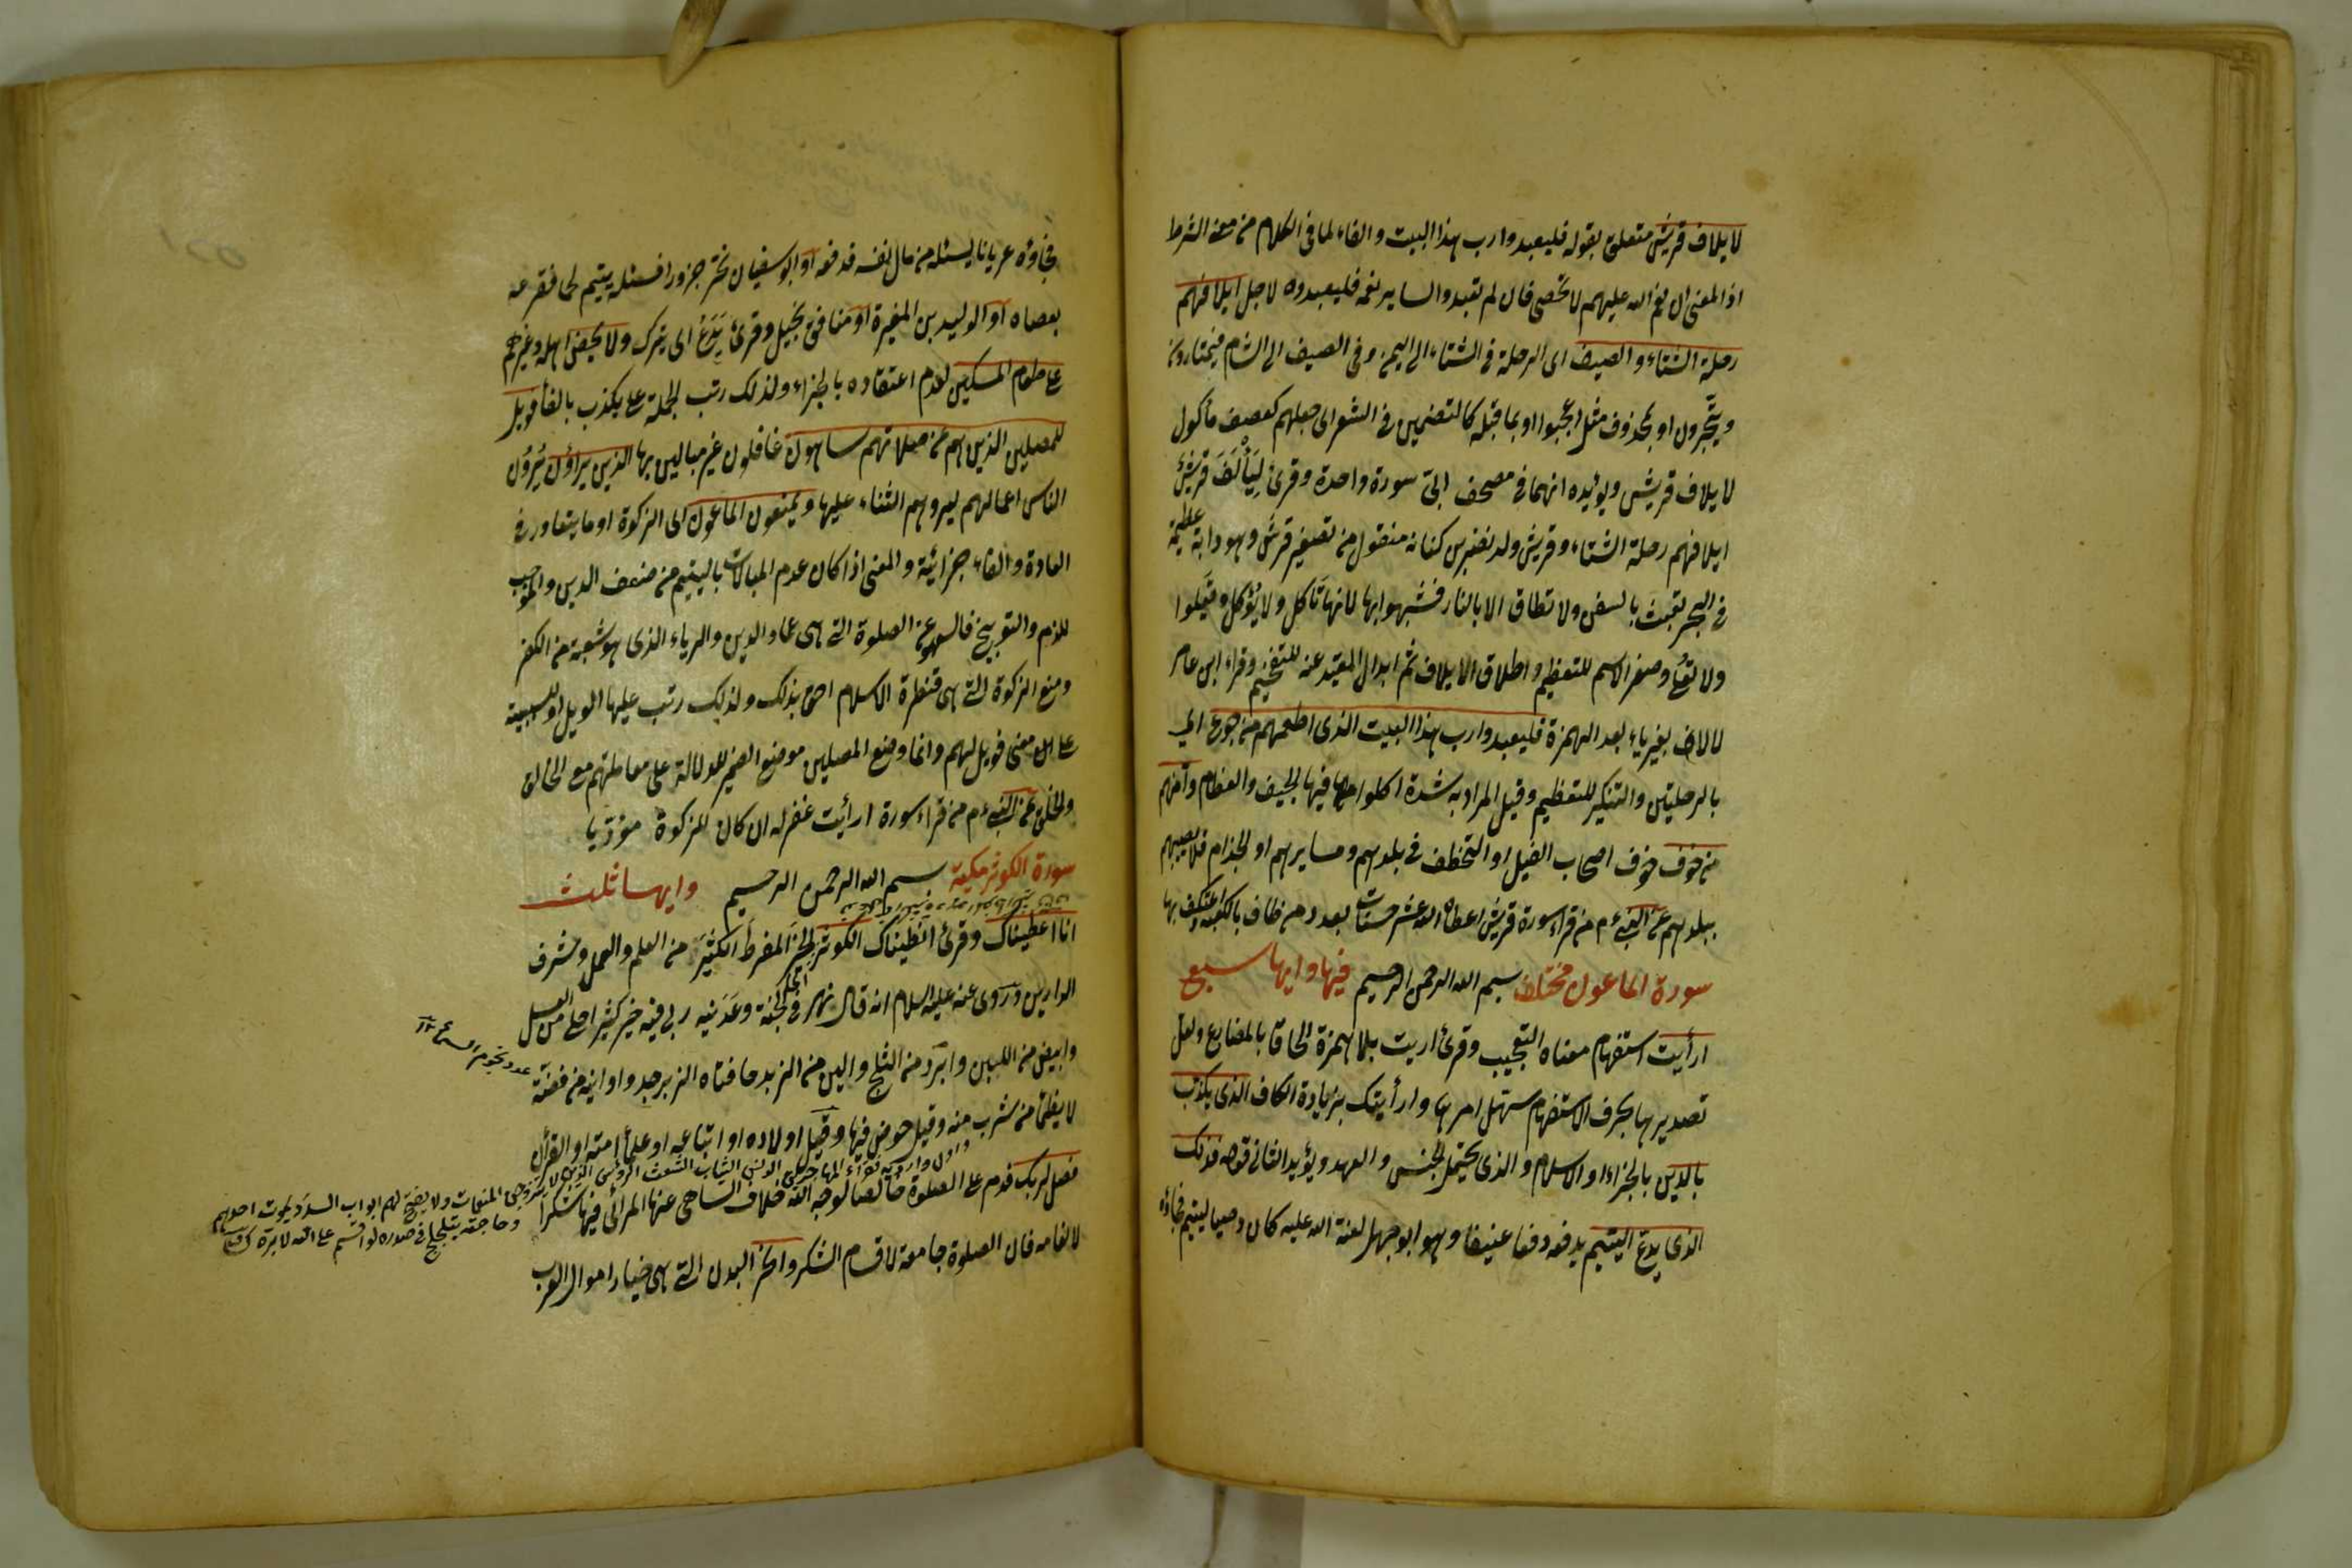 لايلاف قريش متعلق بقوله فليعبدوا رب هذا البيت والفاء لما فى الكلام من معنى الشرط
اذ المعنى ان نعم الله عليهم لا تحصى فان لم يعبدوا لساير نعمه فليعبدوه لاجل ايلافهم
رحلة الشتاء والصيف اى الرحلة فى الشتاء الى اليمن وفى الصيف الى الشام فيمتارون
ويتجرون او بمحذوف مثل اعجبوا او بما قبله كالتضمين فى الشعر اى جعلهم كعصف مأكول
لايلاف قريش ويؤيده انهما فى مصحف ابىّ سورة واحدة وقرئ لِيَأْلَفَ قريشٌ
ايلافهم رحلة الشتاء وقريش ولد نضر بن كنانه منقول من تصغير قرش وهو دابة عظيمة
فى البحر تعبث بالسفن ولا تطاق الا بالنار فشبهوا بها لانها تَأكل ولا يُؤكل وتَعلوا
ولا تُعلى وصغر الاسم للتعظيم واطلاق الايلاف ثم ابدال المقيد عنه للتفخيم وقراء ابن عامر
لالاف بغير ياء بعد الهمزة فليعبدوا رب هذا البيت الذى اطعمهم من جوع اى
بالرحلتين والتنكير للتعظيم وقيل المراد به شدة اكلوا فيها الجيف والعظام وآمنهم
من خوف خوف اصحاب الفيل او التخطف فى بلدهم ومسايرهم او الجذام فلا يصيبهم
ببلدهم عن النبىء م من قراء سورة قريش اعطاه الله عشر حسنات بعدد من طاف بالكعبة واعتكف بها
سورة الماعون مختلف بسم الله الرحمن الرحيم فيها وايها سبع
ارأيت استفهام معناه التعجيب وقرئ اريت بلا همزة الحاقا بالمضارع ولعل
تصديرها بحرف الاستفهام سهل امرها وارأيتك بزيادة الكاف الذى يكذب
بالدين بالجزاء او الاسلام والذى يحتمل الجنس والعهد ويؤيد الثانى قوله فذلك
الذى يدع اليتيم يدفعه دفعا عنيفا وهو ابو جهل لعنة الله عليه كان وصيا ليتيم فجاؤه
فجاؤه عريانا يسئله من مال نفسه فدفعه او ابو سفيان نحر جزورا فسئله يتيم لحما فقرعه
بعصاه او الوليد بن المغيرة او منافق بخيل وقرئ يَدَعُ اى يترك ولا يحض اهله وغيرهم
على طعام المسكين لعدم اعتقاده بالجزاء ولذلك رتب الجملة على يكذب بالفاء فويل
للمصلين الذين هم عن صلاتهم ساهون غافلون غير مبالين بها الذين يراؤن يُرَوْن
الناس اعمالهم ليروهم الثناء عليها ويمنعون الماعون الى الزكوة او ما يتعاور فى
العادة والفاء جزائية والمعنى اذا كان عدم المبالات باليتيم من ضعف الدين والموجب
للذم والتوبيخ فالسهو عن الصلوة التى هى عماد الدين والرياء الذى هو شعبة من الكفر
ومنع الزكوة التى هى قنطرة الاسلام احق بذلك ولذلك رتب عليها الويل او للسببية
على معنى فويل لهم وانما وضع المصلين موضع الضمير للدلالة على معاملتهم مع الخالق
والخلق عن النبىء م من قراء سورة ارأيت غفر له ان كان للزكوة مؤديا
سورة الكوثر مكية بسم الله الرحمن الرحيم وايها ثلث
انا اعطيناك وقرئ انطيناك الكوثر الخير المفرط الكثير من العلم والعمل وشرف
الدارين وروى عنه عليه السلام انه قال نهر فى الجنة وعدنيه ربى فيه خير كثير احلى من العسل
وابيض من اللبن وابرد من الثلج والين من الزبد حافتاه الزبرجد واوانيه من فضة
عدد نجوم السماء
لا يظمأ من شرب منه وقيل حوض فيها وقيل اولاده او اتباعه او علماء امته او القرأن
واول وارديه فقراء المهاجرين الدنس الثياب الشعث الرؤس الذين لا يتزوجون المنعمات ولا يفتح لهم ابواب السدد يموت احدهم
وحاجته يتلجلج فى صدره لو اقسم على الله لابره
فصل لربك فدم على الصلوة خالصا لوجه الله خلاف الساهى عنها المرائى فيها شكرا
لانعامه فان الصلوة جامعة لاقسام الشكر وانحر البدن التى هى خيار اموال العرب